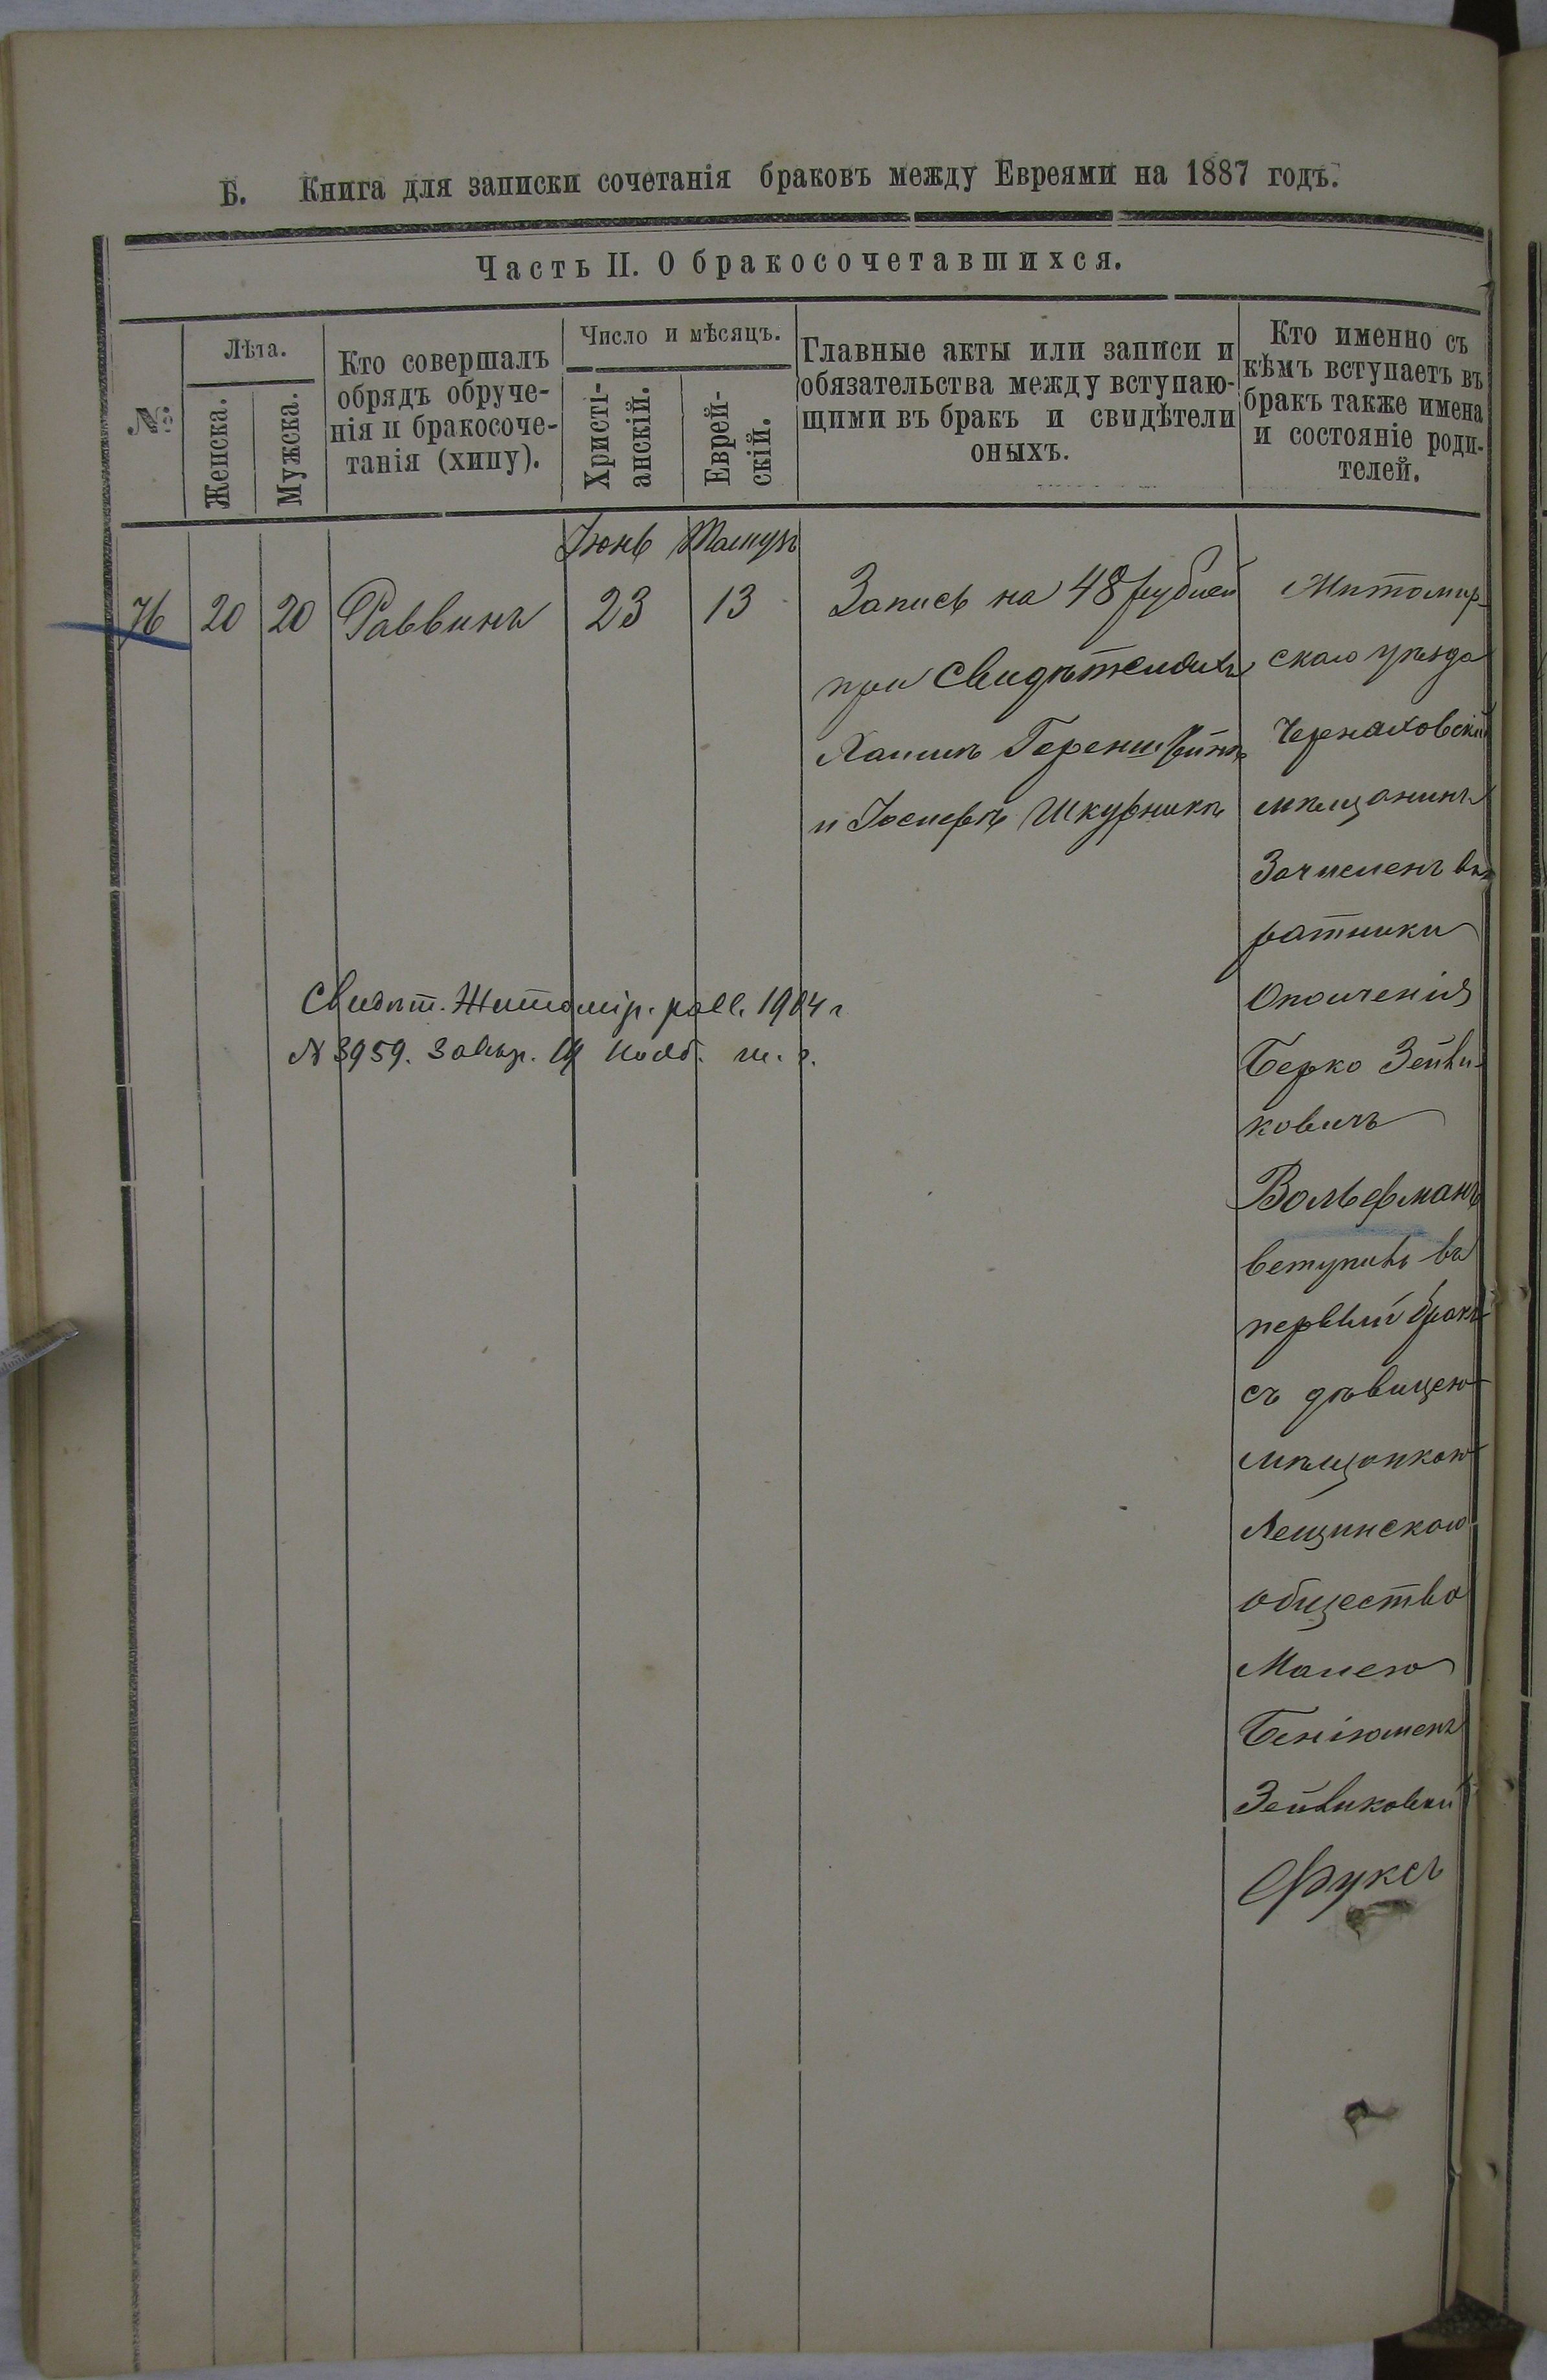 Б. Книга для записки сочетанія браковъ между Евреями на 1887 годъ.
Часть II. О бракосочетавшихся.
№
Лѣта.
Женска.
Мужска.
Кто совершалъ
обрядъ обруче-
нія и бракосоче-
танія (хипу).
Число и мѣсяцъ.
Христі-
анскій.
Еврей-
скій.
Главные акты или записи и
обязательства между вступаю-
щими въ бракъ и свидѣтели
оныхъ.
Кто именно съ
кѣмъ вступаетъ въ
бракъ также имена
и состояніе роди-
телей.
Іюнь Тамузъ
76 20 20 Раввинъ 23 13
Запись на 48 рублей
при Свидѣтеляхъ
Хаимъ Геренштейнъ
и Іосифъ Шкурникъ
Житомир-
скаго уѣзда
Черняховскій
мѣщанинъ
Зачисленъ въ
ратники
Ополченія
Берко Зейли-
ковичъ
Вольфманъ
вступилъ въ
первый бракъ
съ дѣвицею
мѣщанкою
Лещинскаго
общества
Малею
Беніюменъ
Зейликовой
Фуксъ
Свидѣт. Житомір. равв. 1904 г
№ 3959. Завѣр. Нояб. т. г.